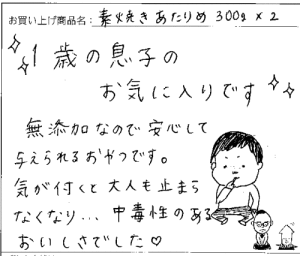 お買い上げ商品名：素焼きあたりめ 300g×2
1歳の息子の
お気に入りです
無添加なので安心して
与えられるおやつです。
気が付くと大人も止まら
なくなり…中毒性のある
おいしさでした♡